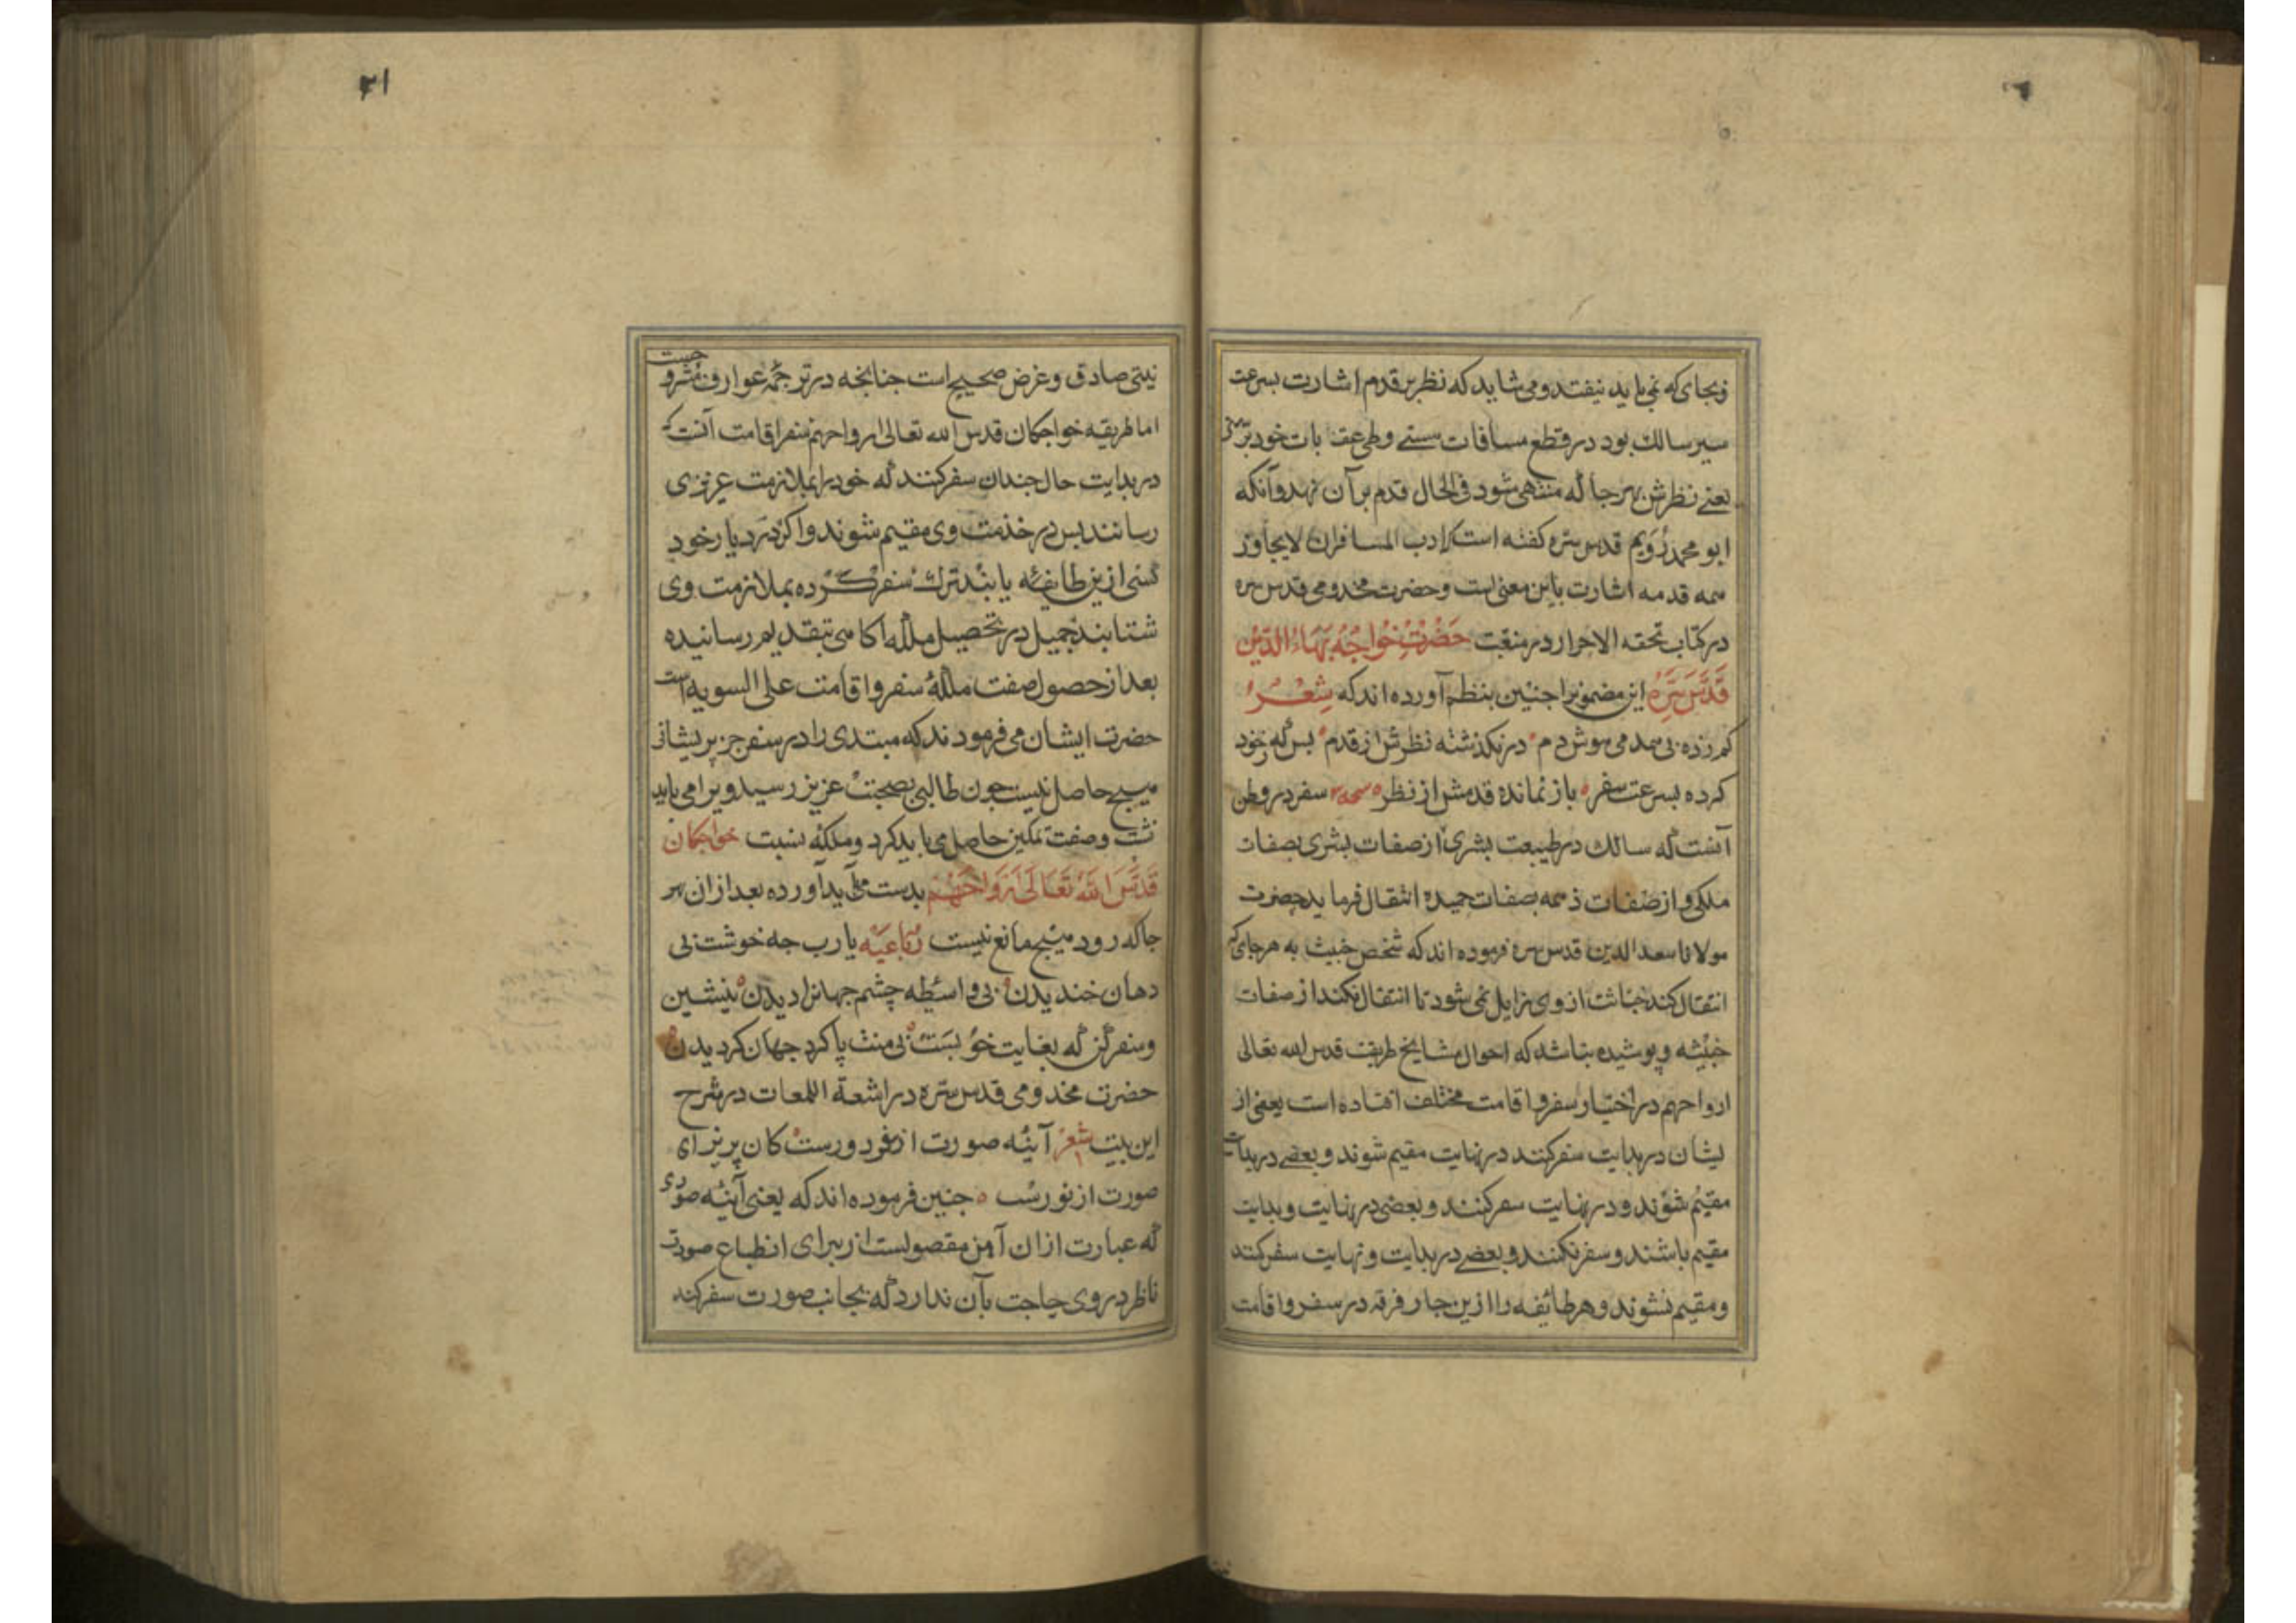 و بجای که نمی باید نیفتد و می شاید که نظر بر قدم اشارت بسرعت
سیر سالک بود در قطع مسافات هستی و طی عقبات خود پرستی
یعنی نظرش بهر جا که منتهی شود فی الحال قدم بر آن نهد و آنکه
ابو محمد رُوَیم قدس سره کفته است که ادب المسافر ان لا یجاوز
همه قدمه اشارت باین معنی است و حضرت مخدومی قدس سره
در کتاب تحفه الاحرار در منقبت حَضْرَتْ خُواجَهْ بَهَاءُ الدّیْن
قَدَّسَ سِرّهُ این مضمونرا جنین بنظم آورده اند که شِعْر
کم زده بی همدمی هوش دم در نکذشته نظرش از قدم بس که ز خود
کرده بسرعت سفر باز نمانده قدمش از نظر سفر در وطن
آنست که سالک در طبیعت بشری از صفات بشری بصفات
ملکی و از صفات ذمیمه بصفات حمیده انتقال فرماید حضرت
مولانا سعد الدین قدس سره فرموده اند که شخص خبیث به هر جای که
انتقال کند خباثت از وی زایل نمی شود تا انتقال نکند از صفات
خبیثه و پوشیده نباشد که احوال مشایخ طریقت قدس الله تعالی
ارواحهم در اختیار سفر و اقامت مختلف افتاده است یعضی از
یشان در بدایت سفر کنند در نهایت مقیم شوند و بعضی در بدایت
مقیم شوند و در نهایت سفر کنند و بعضی در نهایت و بدایت
مقیم باشند و سفر نکنند و بعضی در بدایت و نهایت سفر کنند
و مقیم نشوند و هر طائفه را ازین جار فرقه در سفر و اقامت
۲۱
نیتی صادق و غرض صحیح است جنانجه در ترجمه عوارف مشروحست
اما طریقه خواجکان قدس الله تعالی ارواحهم سفر اقامت آنست که
در بدایت حال جندان سفر کنند که خود را بملازمت عزیزی
رسانند بس در خدمت وی مقیم شوند و اکر در دیار خود
کسی ازین طایفه یابند ترک سفر کرده بملازمت وی
شتابند جمیل در تحصیل ملکه آکاهی بتقدیم رسانیده
بعد از حصول صفت ملکه سفر و اقامت علی السویه است
حضرت ایشان می فرمودند که مبتدی را در سفر جز پریشانی
هیچ حاصل نیست جون طالبی بصحبت عزیز رسید ویرا می باید
نشست و صفت تمکین حاصل می باید کرد و ملکه نسبت خواجکان
قَدَّسَ اللّٰهُ تَعَالَی اَرْوَاحَهُمْ بدست می آید آورده بعد از ان هر
جا که رود هیچ مانع نیست رُباعیَه یا رب جه خوشت بی
دهان خندیدن بی واسطه چشم جهانرا دیدن بنشین
و سفر کن که بغایت خوبست بی منت پا کرد جهان کردیدن
حضرت مخدومی قدس سره در اشعة اللمعات در شرح
این بیت شعر آینه صورت از سفر دورست کان پریزای
صورت از نورست جنین فرموده اند که یعنی آینه صوری
که عبارت از ان آهن مقصولست از برای انطباع صورت
ناظر در وی حاجت بآن ندارد که بجانب صورت سفر کند